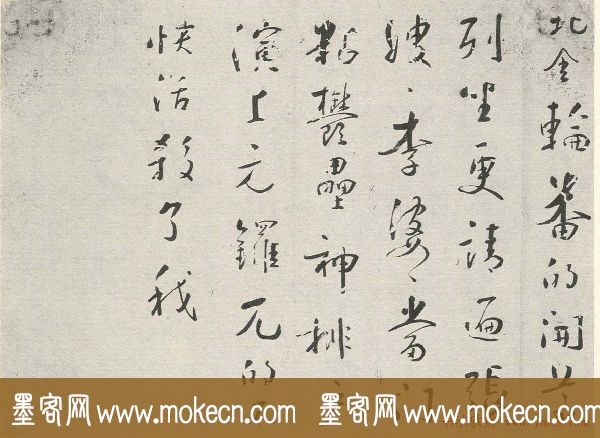 北金輪番的開
列坐更請遍張
嫂、李婆、當江
鬱壘神排
演上元鑼兀的
快活殺了我
墨客网 www.mokecn.com 墨客网 www.mokecn.com